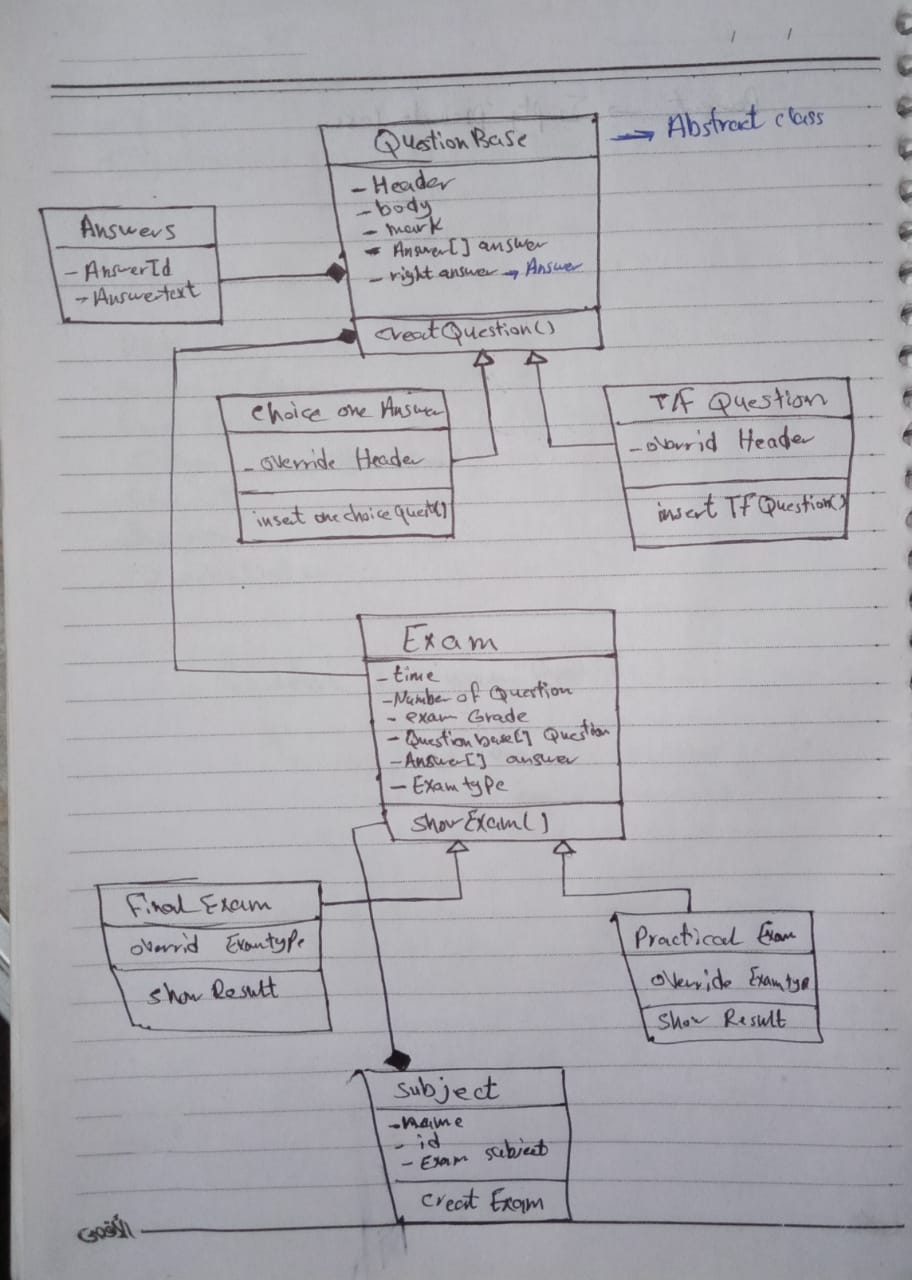 QuestionBase
→ Abstract class
- Header
- body
- mark
- Answer[] answer
- right answer → Answer
creatQuestion()
Answers
- AnswerId
- Answertext
choice one Answer
- override Header
insert onechoice Quest()
T/F Question
- overrid Header
insert TF Question()
Exam
- time
- Number of Question
- exam Grade
- Questionbase[] Question
- Answer[] answer
- Examtype
showExam()
Final Exam
overrid Examtype
show Result
Practical Exam
override Examtype
show Result
subject
- name
- id
- Exam subject
creat Exam